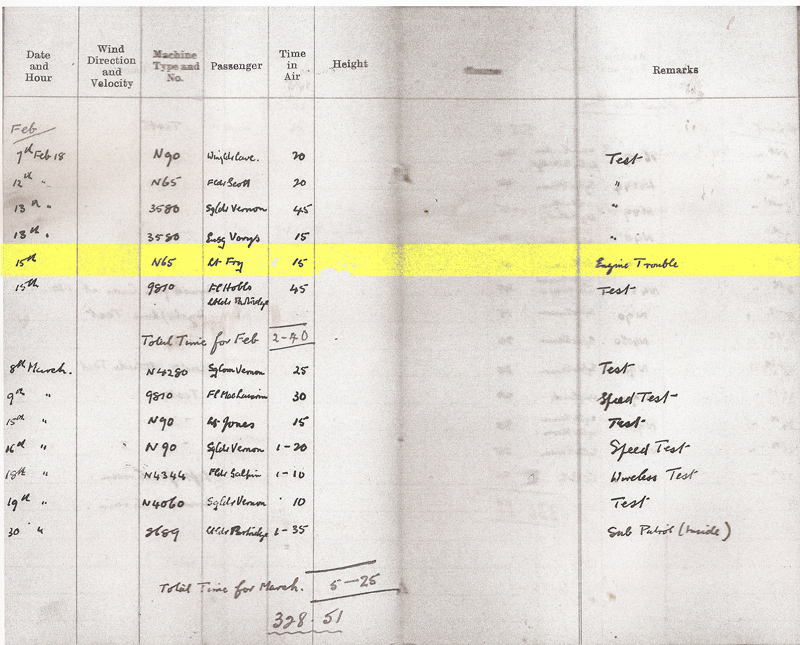 Date and Hour Wind Direction and Velocity Machine Type and No. Passenger Time in Air Height Remarks
Feb
7th Feb 18 N90 20 Test
12th " N65 Scott 20 "
13th " 3580 Sqdr Vernon 45 "
13th " 3580 Ensg 15 "
15th N65 Lt Fry 15 Engine Trouble
15th 9810 Fl Hobbs 45 Test
Partridge
Total Time for Feb 2-40
8th March. N4280 Sqcom Vernon 25 Test
9th " 9810 30 Speed Test
15th " N90 Lt Jones 15 Test
16th " N90 Sqdr Vernon 1-20 Speed Test
18th " N4344 1-10 Wireless Test
19th " N4060 Sqdr Vernon 10 Test
30 " 8689 Partridge 1-35 Sub Patrol (Inside)
Total Time for March. 5-25
328.51